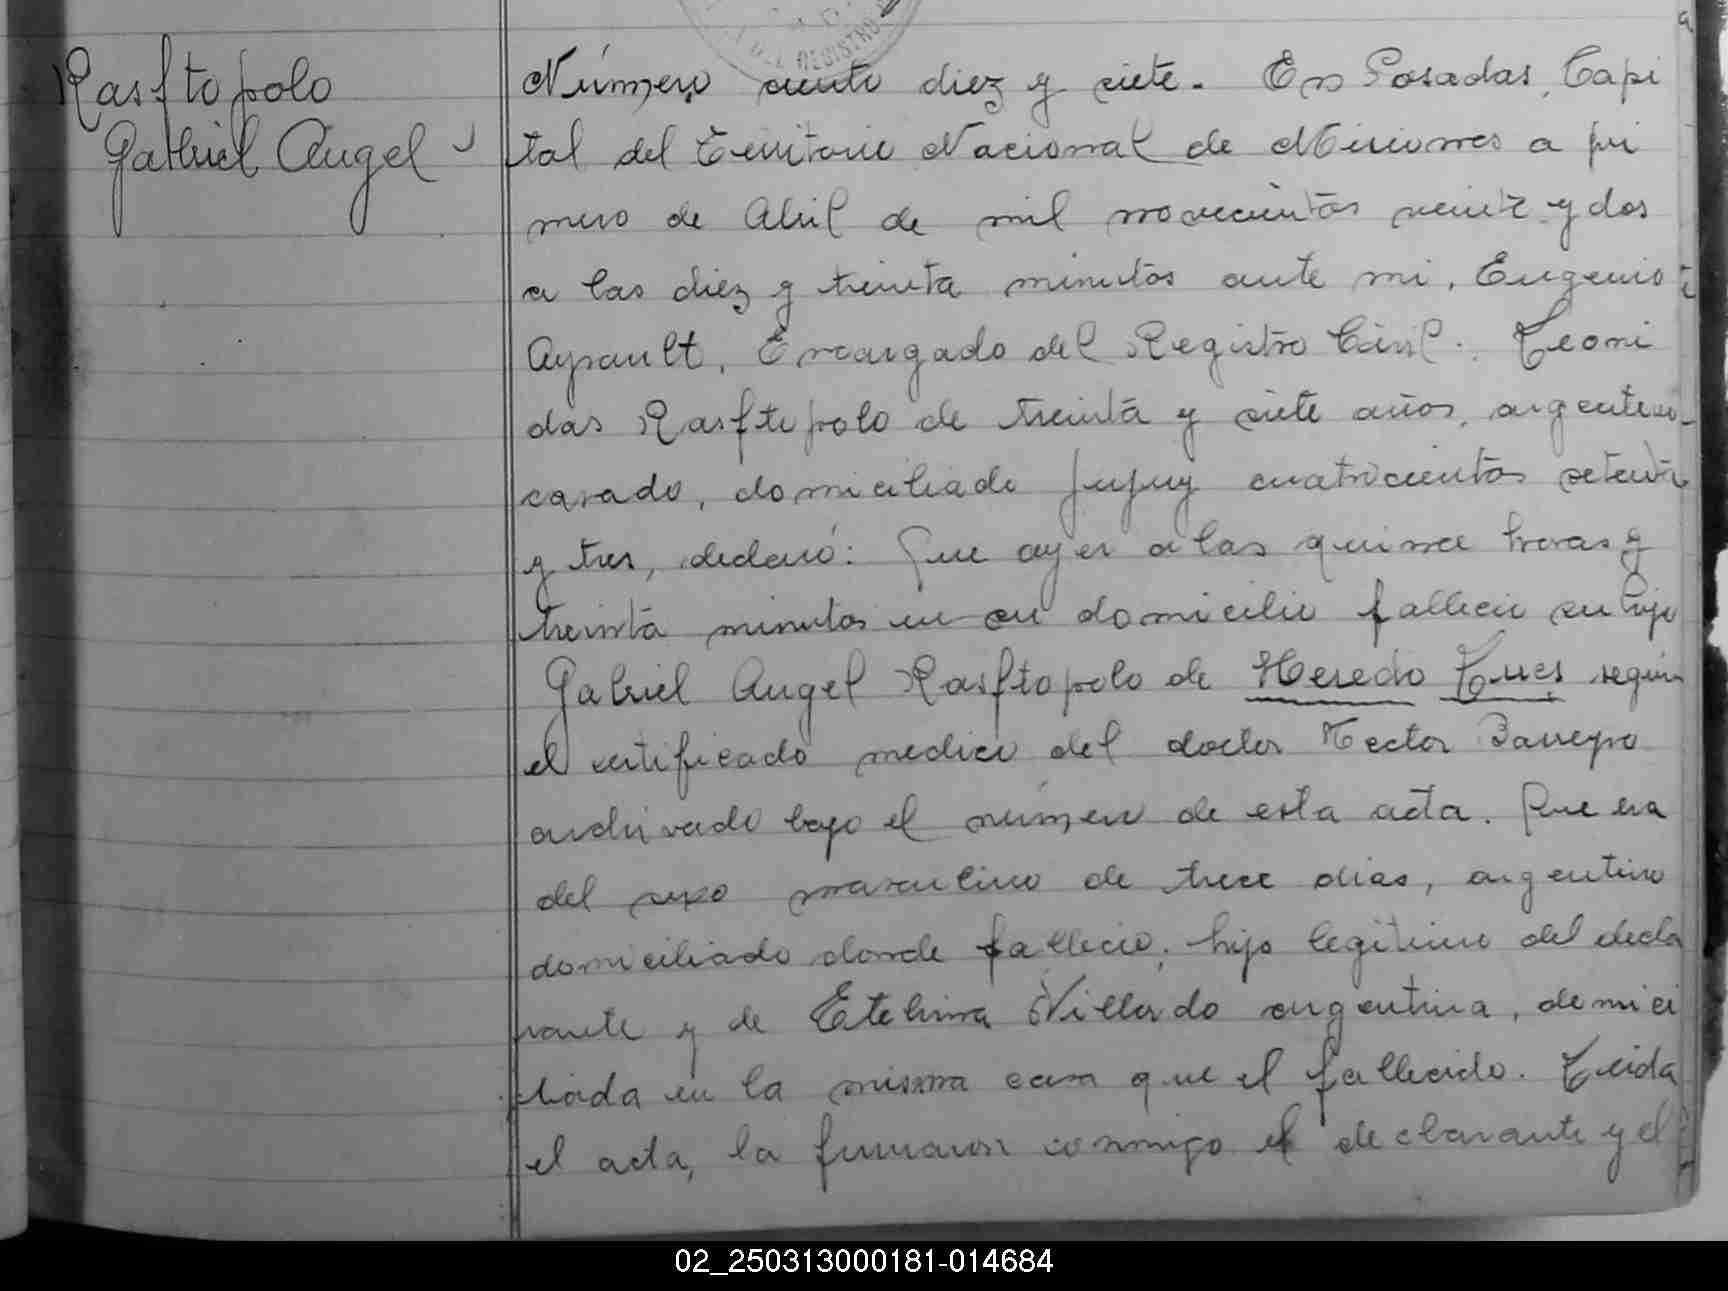 Rasftopolo
Gabriel Angel
DEL REGISTRO
Número ciento diez y siete. En Posadas, Capi
tal del Territorio Nacional de Misiones a pri
mero de Abril de mil novecientos veinte y dos
a las diez y treinta minutos ante mi, Eugenio
Ayrault, Encargado del Registro Civil. Leoni
das Rasftopolo de treinta y siete años, argentino
casado, domiciliado Jujuy cuatrocientos setenta
y tres, declaró: Que ayer a las quince horas y
treinta minutos en su domicilio fallecio su hijo
Gabriel Angel Rasftopolo de Heredo Lues según
el certificado medico del doctor Hector Barreyro
archivado bajo el número de esta acta. Que era
del sexo masculino de trece dias, argentino
domiciliado donde fallecio, hijo legitimo del decla
rante y de Etelvina Villordo argentina, domici
liada en la misma casa que el fallecido. Leida
el acta, la firmaron conmigo el declarante y el
02_250313000181-014684